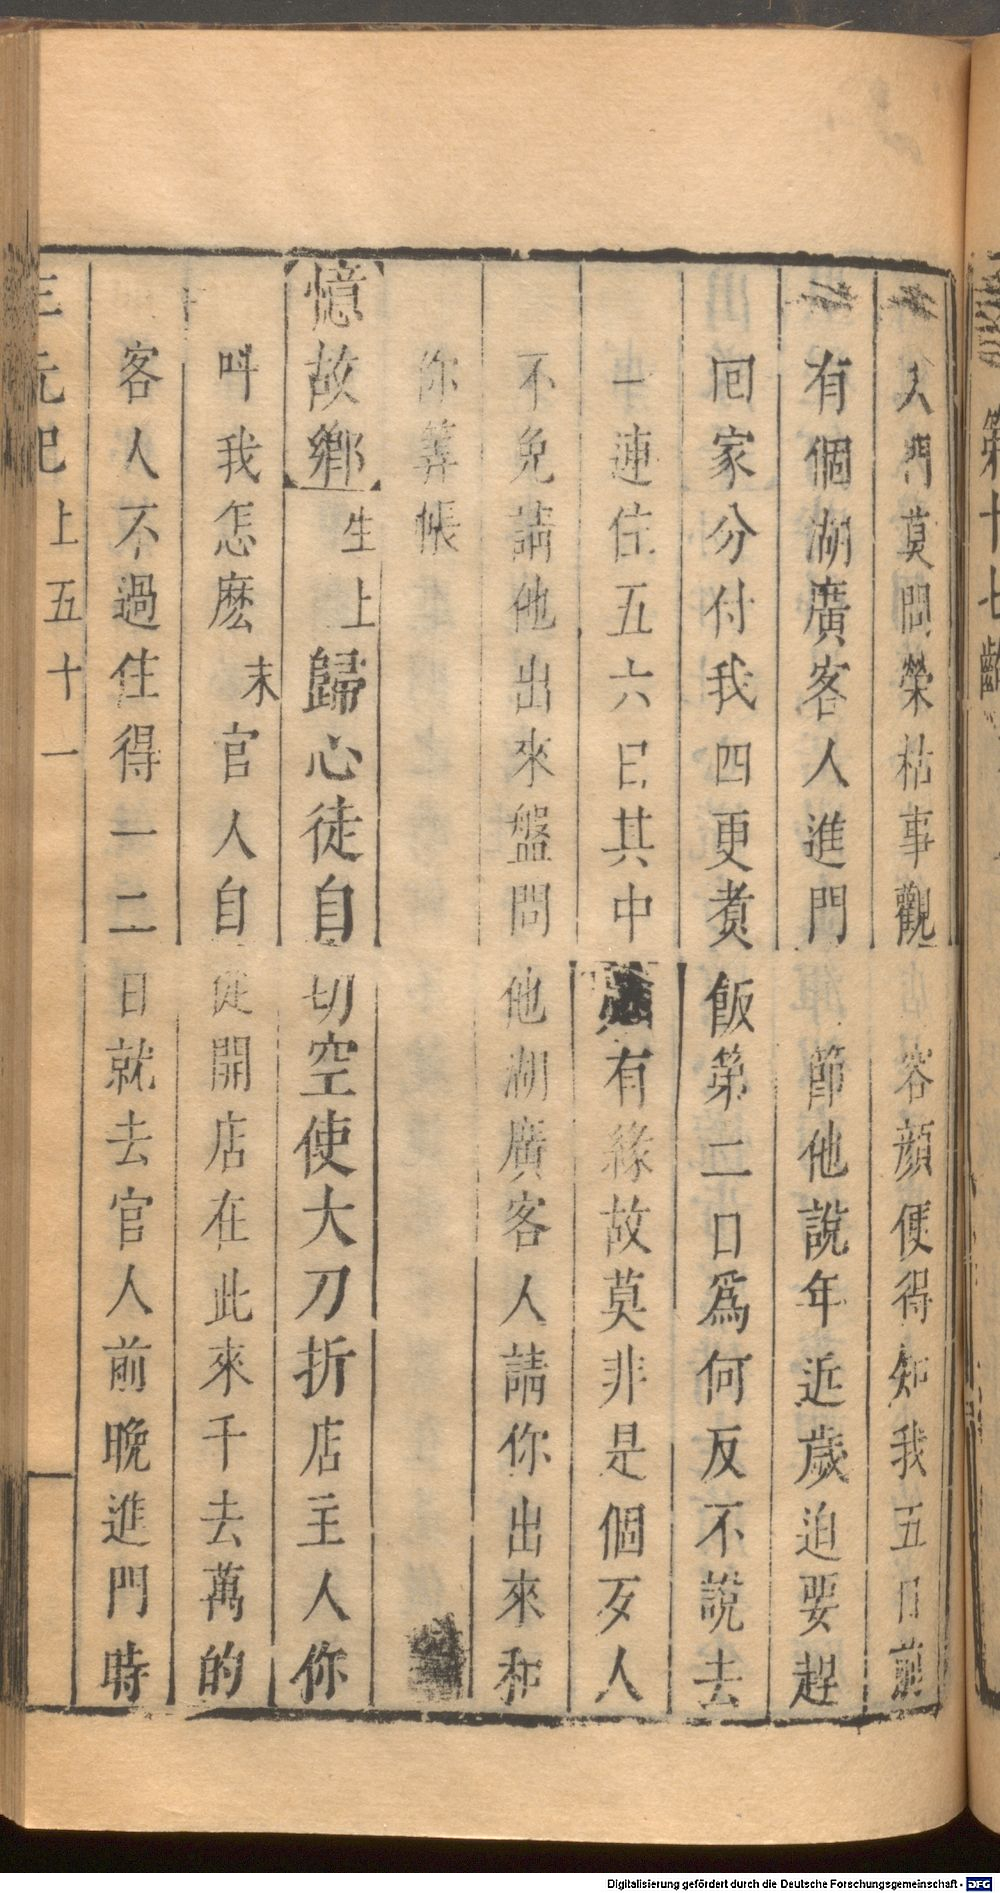 入門莫問榮枯事觀容顏便得知我五日前
有個湖廣客人進門節他說年近歲迫要趕
回家分付我四更煑飯第二口爲何反不說去
一連住五六日其中有緣故莫非是個歹人
不免請他出來盤問他湖廣客人請你出來和
你筭帳
憶故鄉 生上 歸心徒自切空使大刀折店主人你
叫我怎麽 末 官人自從開店在此來千去萬的
客人不過住得一二日就去官人前晚進門時
三元記 上五十一
第十七齣
Digitalisierung gefördert durch die Deutsche Forschungsgemeinschaft - DFG